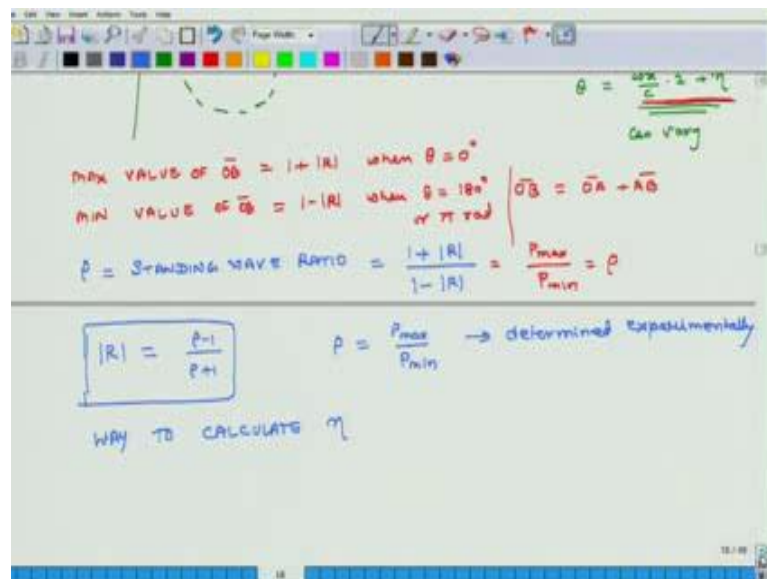 Page Width
θ = ωx/c · 2 + η
Can vary
MAX VALUE OF OB = 1+|R| when θ = 0°
MIN VALUE OF OB = 1-|R| when θ = 180° or π rad
OB = OA + AB
ρ = STANDING WAVE RATIO = 1+|R| / 1-|R| = Pmax / Pmin = ρ
|R| = ρ-1 / ρ+1
ρ = Pmax / Pmin → determined experimentally
WAY TO CALCULATE η